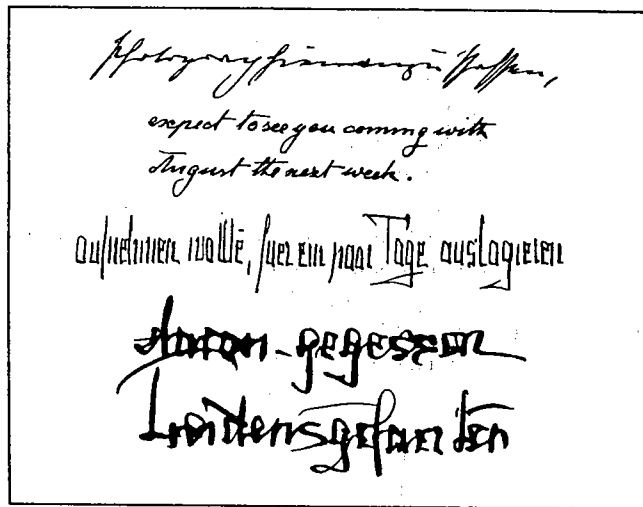 Photographieren zu lassen,
expect to see you coming with
August the next week.
aufnehmen wollte, fuer ein paar Tage auslagieren
daran gegessen
Leidensgefaerten